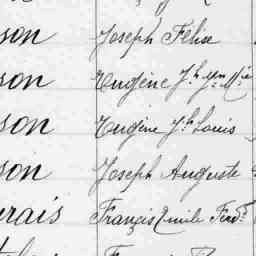 son Joseph Félix
son Eugène Jh Ym Mie
son Eugène Jh Louis
son Joseph Auguste
rais François Emile Ferdt